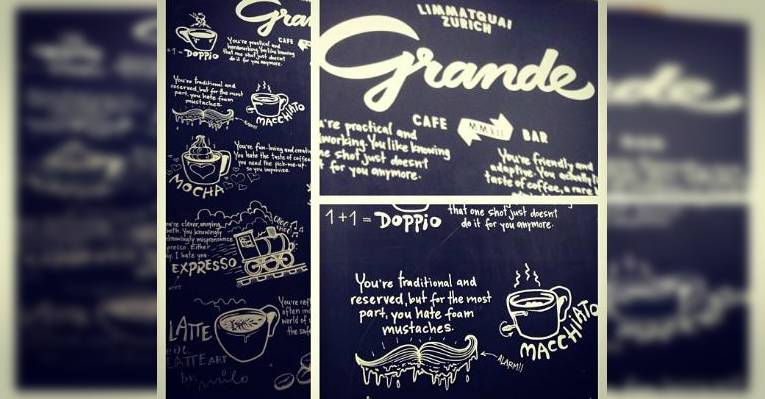 Grande
CAFE
1 - DOPPIO
You're practical and
hardworking. You like knowing
that one shot just doesnt
do it for you anymore.
You're traditional and
reserved, but for the most
part, you hate foam
mustaches.
MACCHIATO
You're fun-loving and
You hate the taste of coffee
you need the pick-me-up
so you improvise.
MOCHA
EXPRESSO
You're
LATTE
LATTE ART
LIMMATQUAI
ZURICH
Grande
CAFE MMXII BAR
're practical and
working. You like knowing
ne shot just doesnt
t for you anymore.
You're friendly and
adaptive. You actually
taste of coffee, a rare
1+1 = DOPPIO
that one shot just doesnt
do it for you anymore.
You're traditional and
reserved, but for the most
part, you hate foam
mustaches.
MACCHIATO
ALARM!!